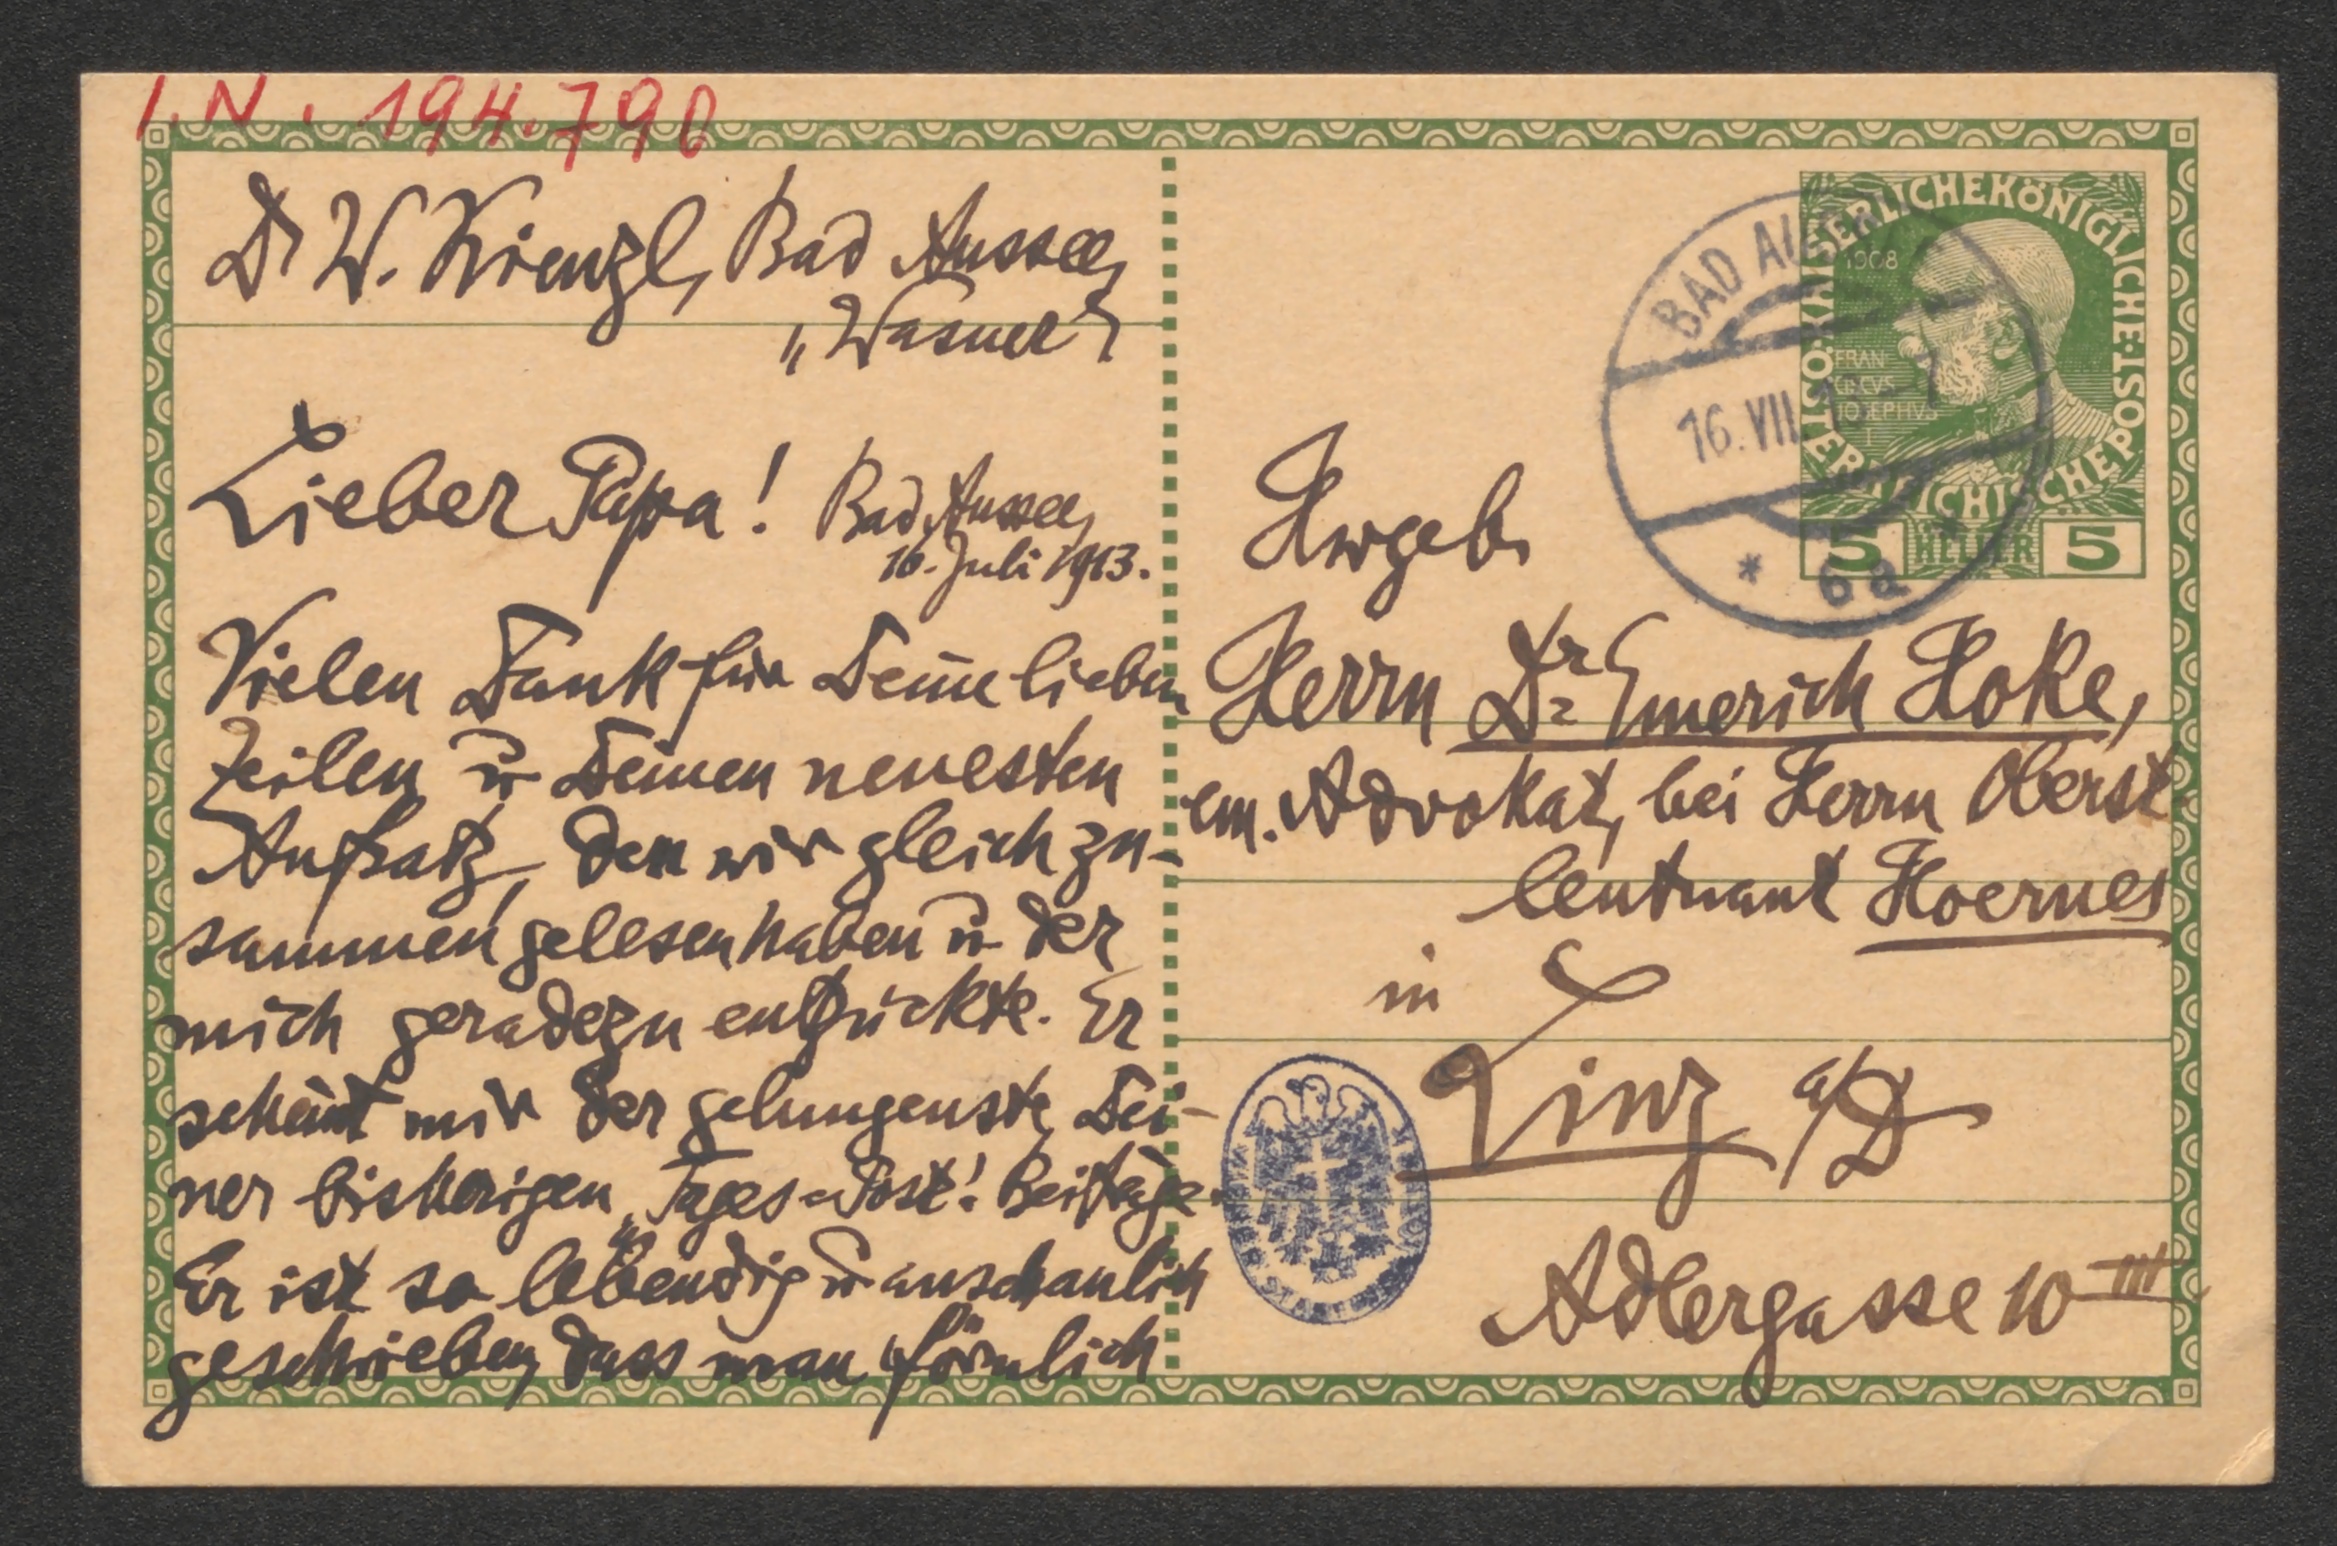 I.N. 194.790
Dr W. Kienzl, Bad Aussee,
„Wasner“
Lieber Papa! Bad Aussee,
16. Juli 1913.
Vielen Dank für Deine lieben
Zeilen u Deinen neuesten
Aufsatz, den wir gleich zu-
sammen gelesen haben u der
mich geradezu entzückte. Er
scheint mir der gelungenste Dei-
ner bisherigen „Tages-Post“-Beiträge.
Er ist so lebendig u anschaulich
geschrieben, dass man förmlich
KAISERLICHEKÖNIGLICHE
ÖSTERREICHISCHE POST
1908
FRAN
CISCVS
JOSEPHVS
I
5 HELLER 5
BAD AUSSEE
16. VII. 13 - 7
* 6a *
Hwgeb.
Herrn Dr Emerich Hoke,
em. Advokat, bei Herrn Oberst-
leutnant Hoernes
in
Linz a/D
Adlergasse 10 III